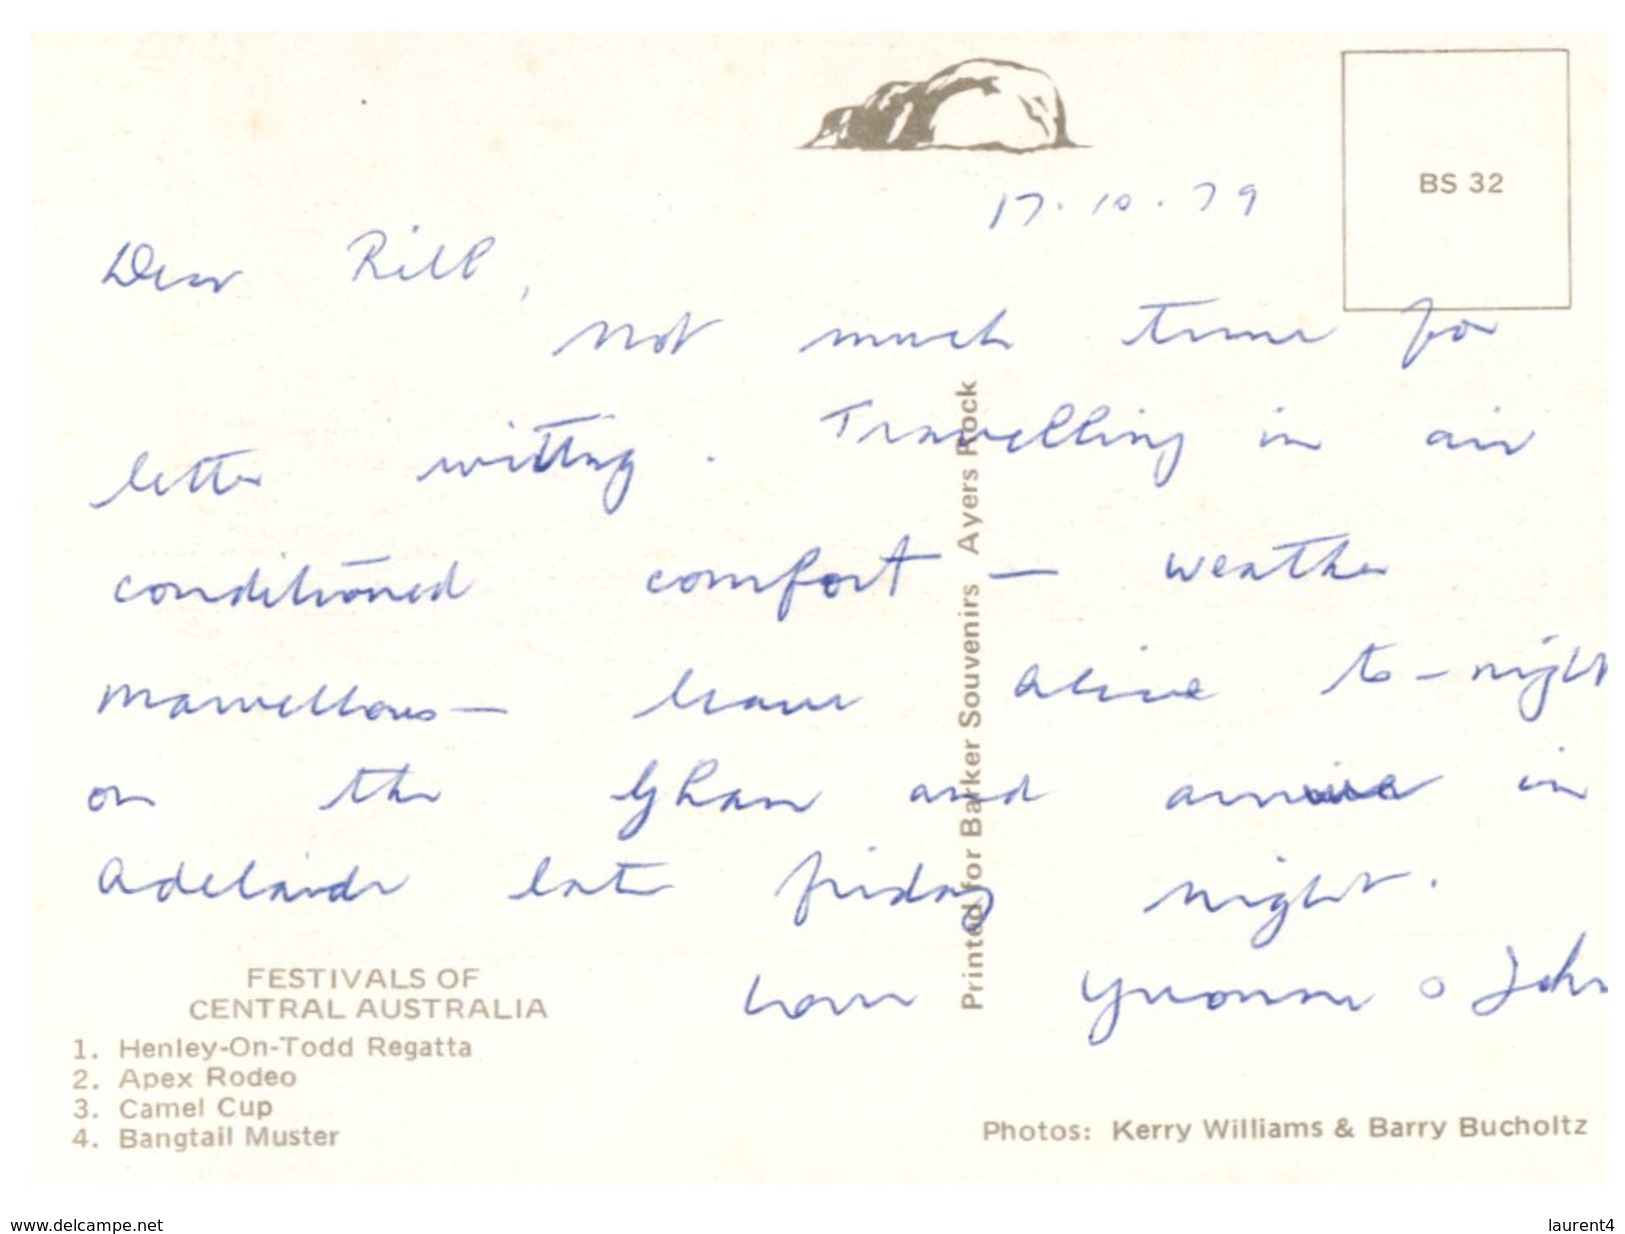 BS 32
17.10.79
Dear Rill,
not much time for
letter writtng. Travelling in air
conditioned comfort — weather
marvellous — leave Alice to-night
on the Ghan and arrive in
Adelaide late friday night.
Love Yvonne & John
Printed for Barker Souvenirs Ayers Rock
FESTIVALS OF
CENTRAL AUSTRALIA
1. Henley-On-Todd Regatta
2. Apex Rodeo
3. Camel Cup
4. Bangtail Muster
Photos: Kerry Williams & Barry Bucholtz
www.delcampe.net
laurent4